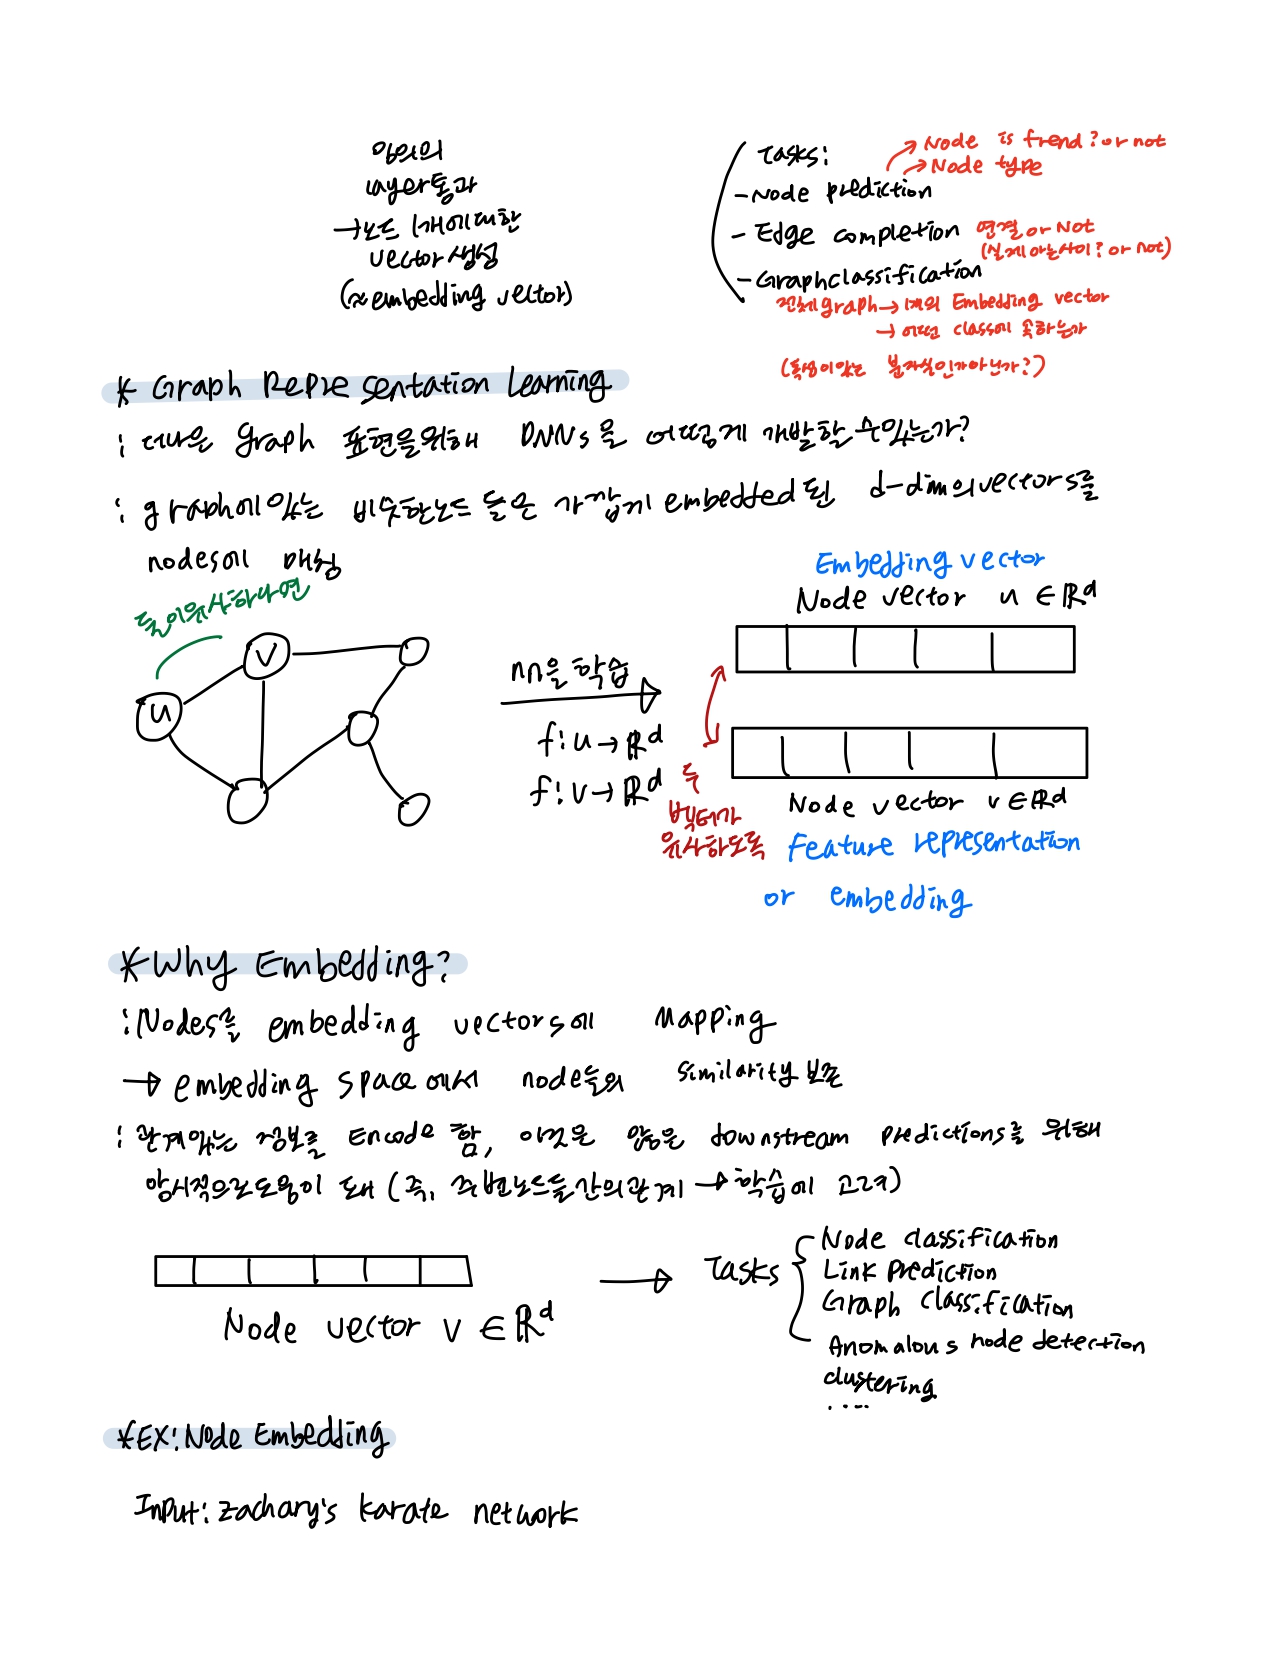 임의의
layer통과
→노드 1개에대한
vector생성
(≈embedding vector)
Tasks:
- Node prediction
→ Node is frend? or not
→ Node type
- Edge completion 연결 or Not
(실제 아는사이? or not)
- Graph classification
전체graph → 1개의 Embedding vector
→ 어떤 class에 속하는가
(독성이있는 분자식인가아닌가?)
* Graph Representation Learning
: 더나은 graph 표현을위해 DNNs을 어떻게 개발할 수있는가?
: graph에있는 비슷한노드 들은 가깝게 embedded 된 d-dim의vectors를
nodes에 매칭
둘이유사하다면
u
v
nn을 학습
f: u → ℝᵈ
f: v → ℝᵈ
Embedding vector
Node vector u ∈ ℝᵈ
두
벡터가
유사하도록
Node vector v ∈ ℝᵈ
Feature representation
or embedding
* Why Embedding?
: Nodes를 embedding vectors에 Mapping
→ embedding space에서 node들의 similarity 보존
: 관계있는 정보를 Encode 함, 이것은 많은 downstream predictions를 위해
암시적으로도움이 돼 (즉, 주변노드들간의관계 → 학습에 고려)
Node vector v ∈ ℝᵈ
→ Tasks
Node classification
Link prediction
Graph classification
Anomalous node detection
clustering
....
* EX: Node Embedding
Input: Zachary's karate network